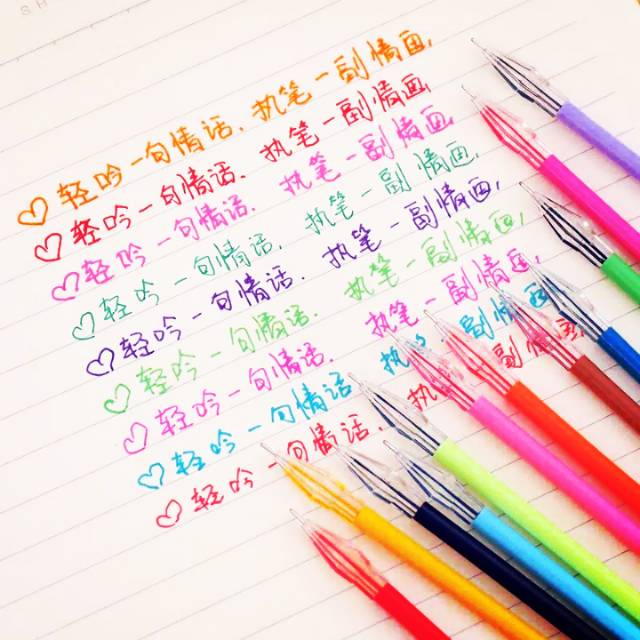 SH
♡轻吟一句情话，执笔一副情画，
♡轻吟一句情话，执笔一副情画
♡轻吟一句情话，执笔一副情画
♡轻吟一句情话，执笔一副情画，
♡轻吟一句情话，执笔一副情画，
♡轻吟一句情话，执笔一副情画，
♡轻吟一句情话，执笔一副情画，
♡轻吟一句情话，执笔一副情画
♡轻吟一句情话，执 副情